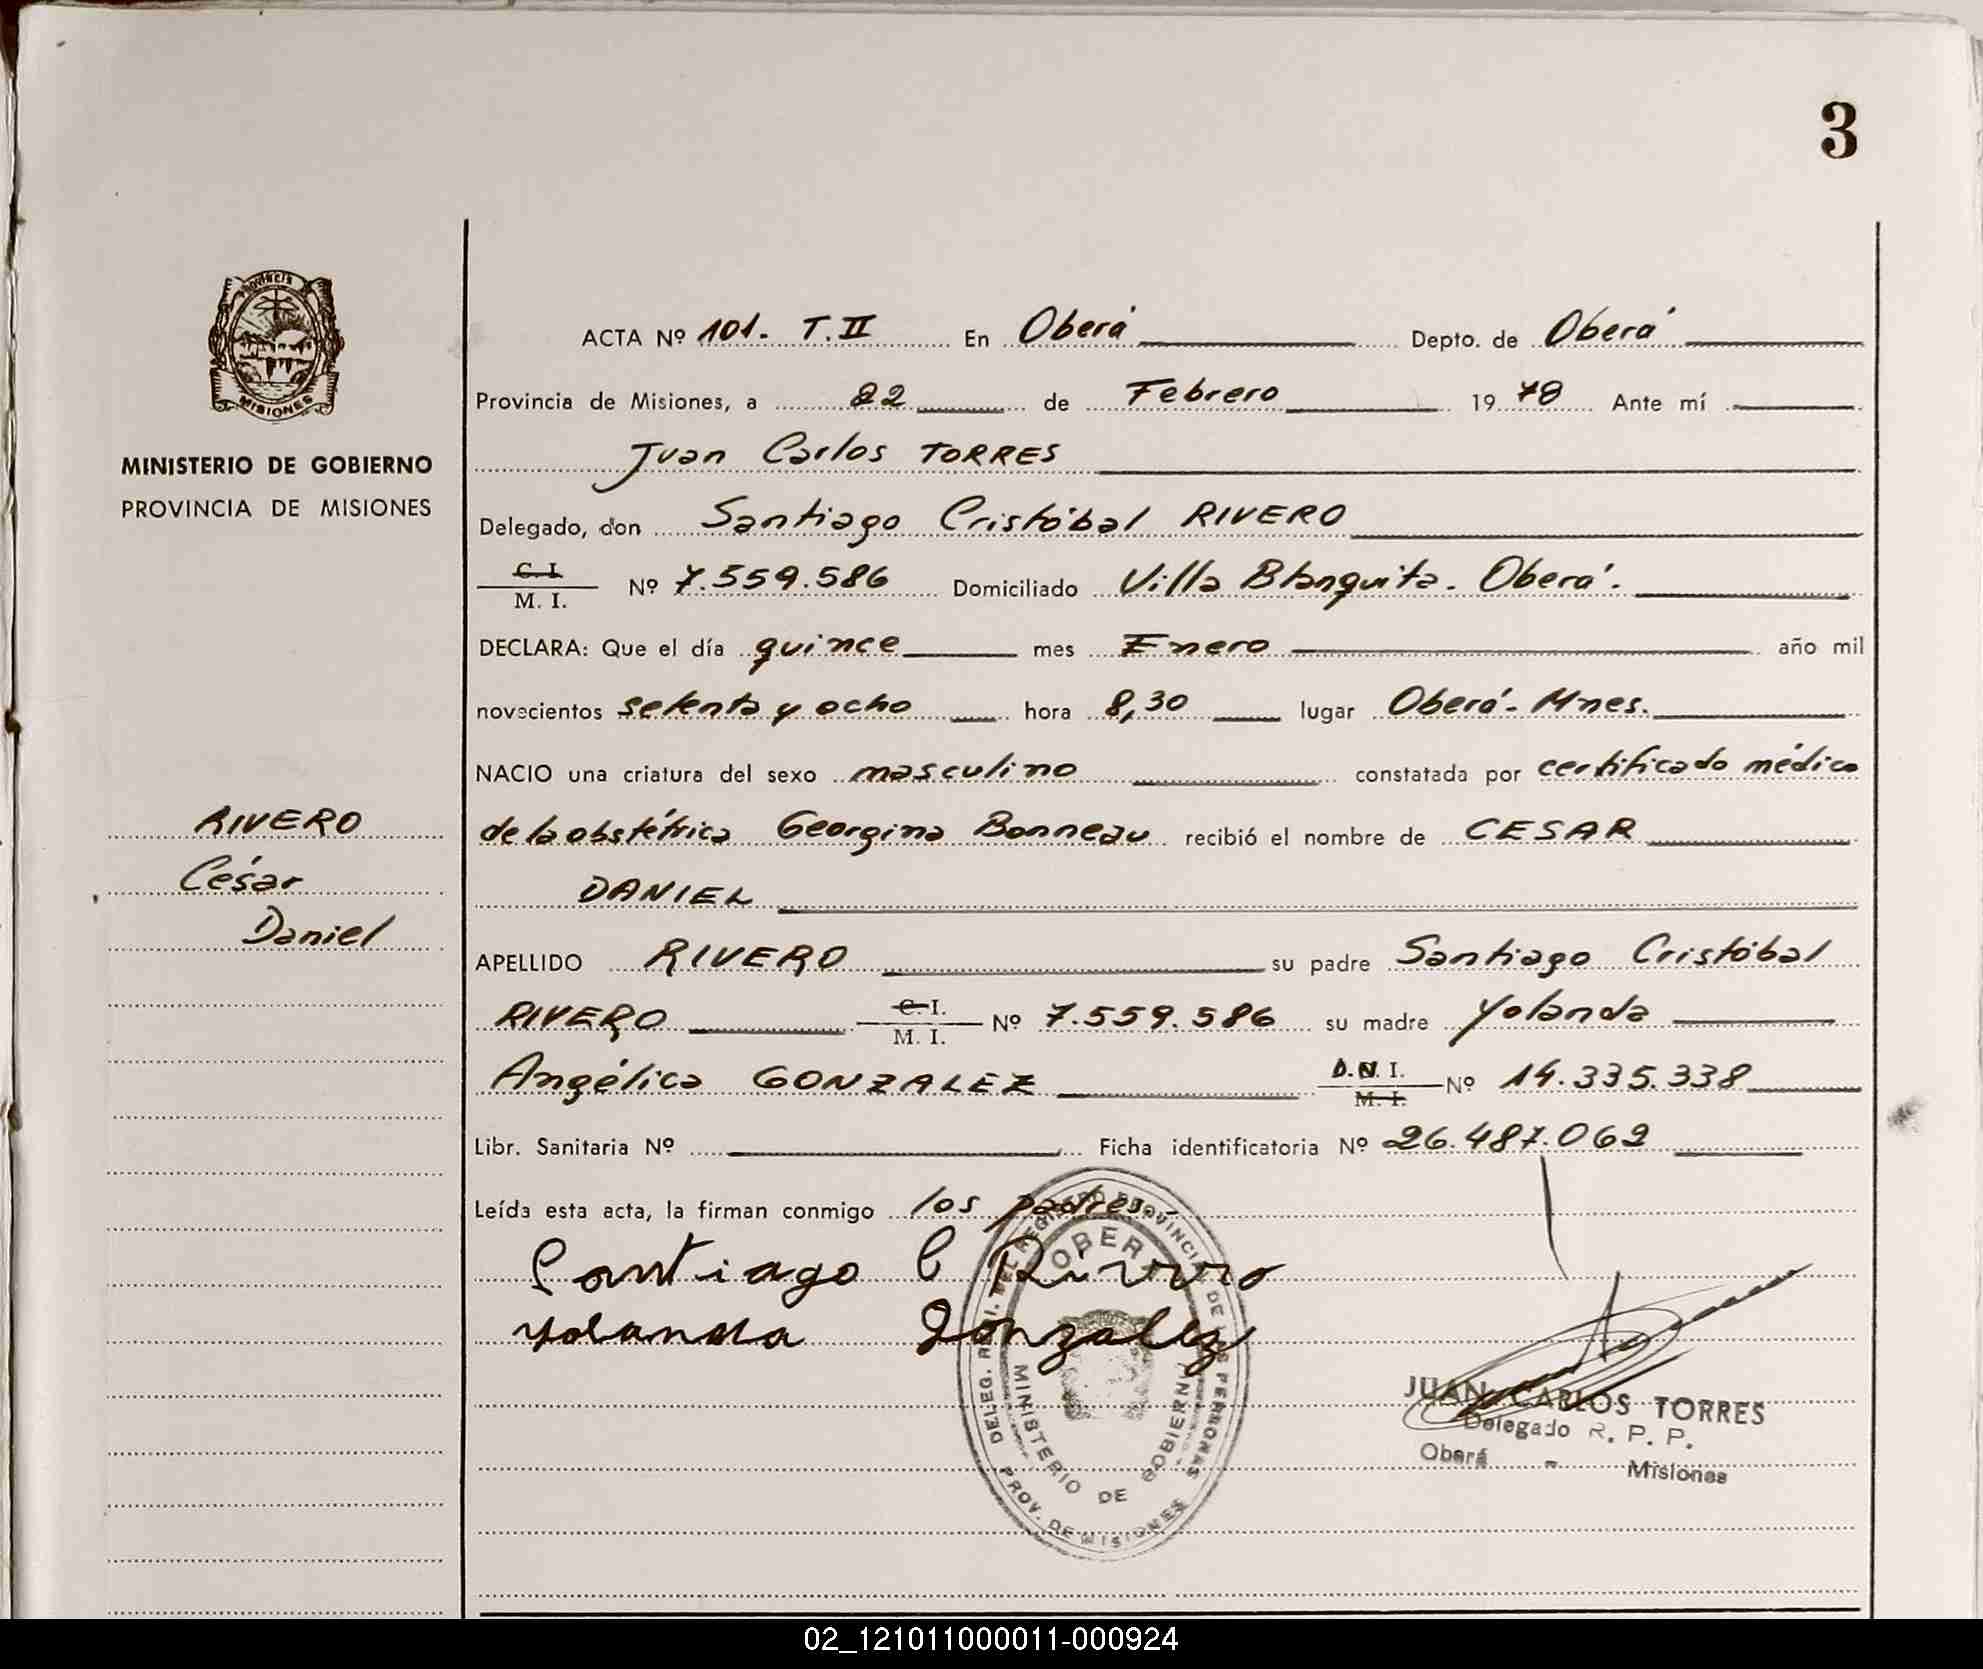 3
Provincia
MISIONES
MINISTERIO DE GOBIERNO
PROVINCIA DE MISIONES
RIVERO
César
Daniel
ACTA Nº 101. T.II En Oberá Depto. de Oberá
Provincia de Misiones, a 22 de Febrero 1978 Ante mí
Juan Carlos TORRES
Delegado, don Santiago Cristóbal RIVERO
C. I.
M. I. Nº 7.559.586 Domiciliado Villa Blanquita. Oberá.
DECLARA: Que el día quince mes Enero año mil
novecientos setenta y ocho hora 8,30 lugar Oberá - Mnes.
NACIO una criatura del sexo masculino constatada por certificado médico
de la obstétrica Georgina Bonneau recibió el nombre de CESAR
DANIEL
APELLIDO RIVERO su padre Santiago Cristóbal
RIVERO C. I.
M. I. Nº 7.559.586 su madre Yolanda
Angélica GONZALEZ D.N. I.
M. I. Nº 14.335.338
Libr. Sanitaria Nº Ficha identificatoria Nº 26.487.062
Leída esta acta, la firman conmigo los padres.
Santiago C Rivero
Yolanda Gonzalez
DELEG. REGI. DEL REGISTRO PROVINCIAL DE LAS PERSONAS
OBERA
MINISTERIO DE GOBIERNO
PROV. DE MISIONES
JUAN CARLOS TORRES
Delegado R. P. P.
Oberá - Misiones
02_121011000011-000924